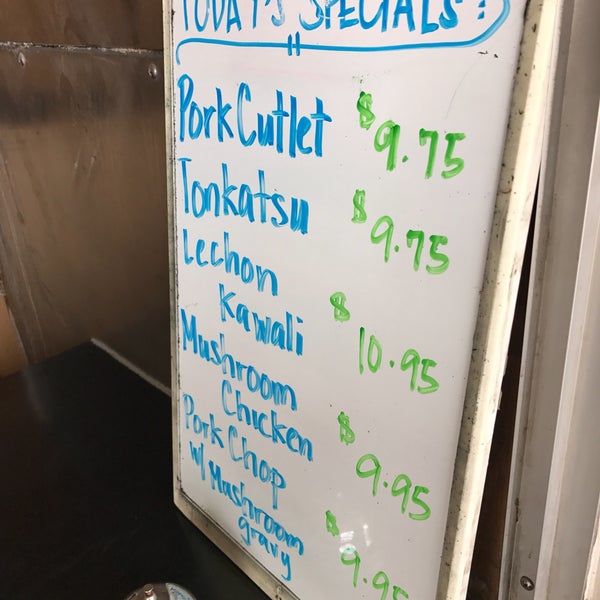 TODAY'S SPECIALS:
Pork Cutlet $9.75
Tonkatsu $9.75
Lechon
Kawali $10.95
Mushroom
Chicken $9.95
Pork Chop
w/ Mushroom
gravy $9.95